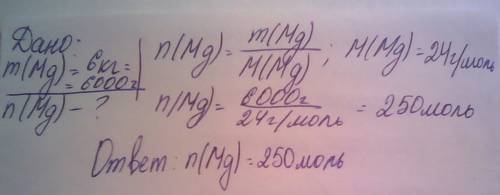 Дано:
m(Mg) = 6кг =
= 6000г
n(Mg) - ?
n(Mg) = m(Mg) / M(Mg) ; M(Mg) = 24г/моль
n(Mg) = 6000г / 24г/моль = 250моль
Ответ: n(Mg) = 250моль